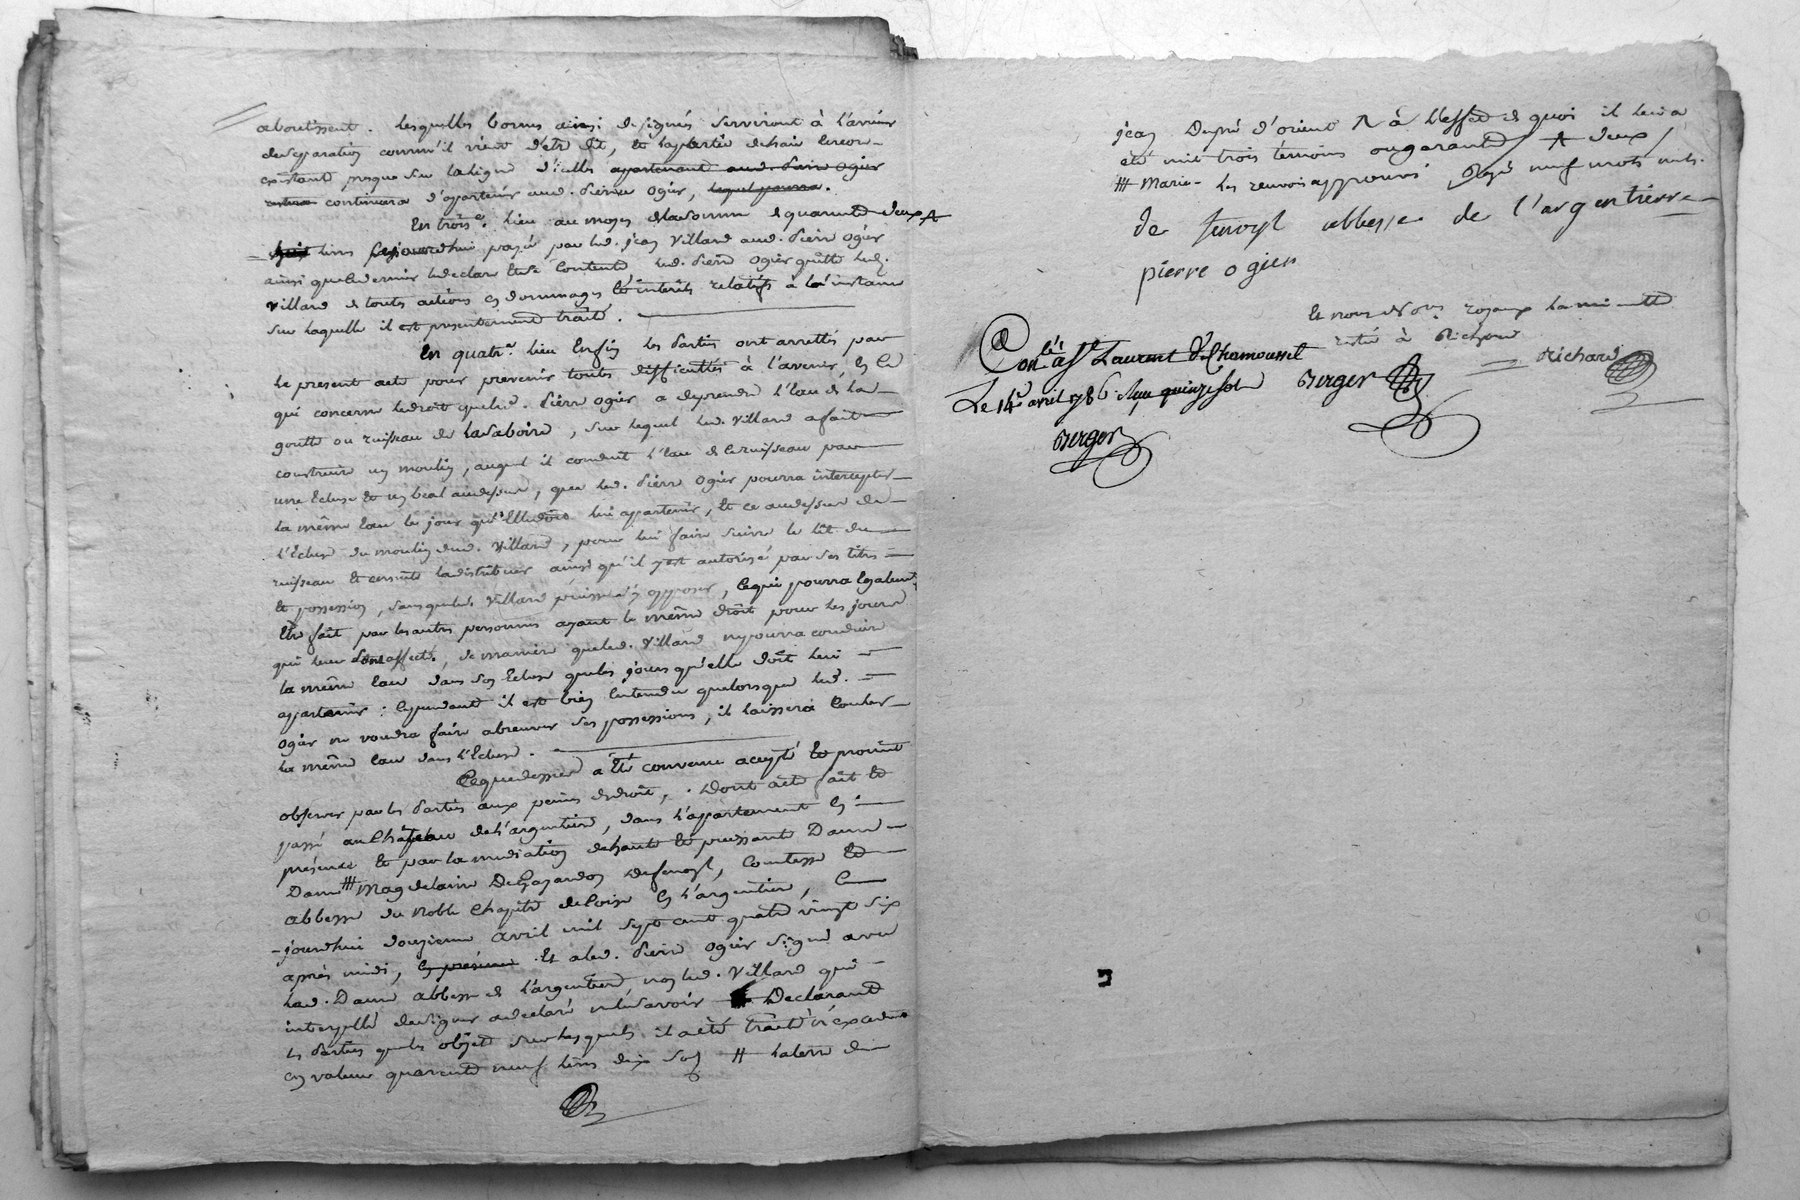 aboutissent. Lesquelles bornes ainsi designés serviront à l'avenir
de separation comm'il vient d'etre dit, et la partie de haie
existant presque sur la ligne d'icelles appartenant aud. Pierre Ogier
continuera d'appartenir aud. Pierre Ogier, lequel pourra.
En trois.e lieu au moyen de la somme de quarante deux
huit livres cejourd'hui payée par led. jean Villard aud. Pierre Ogier
ainsi que ce dernier le declare et se contente led. Pierre Ogier quitte led.
Villard de touts actions en dommages et interets relatifs à l'instance
sur laquelle il est presentement traité.
En quatr.e lieu Enfin les Parties ont arrettés par
le present acte pour prevenir toutes difficultés à l'avenir, en ce
qui concerne le droit que led. Pierre Ogier a de prendre l'eau de la
goutte ou ruisseau de la Saboire, sur lequel led. Villard a fait
construire un moulin, auquel il conduit l'eau de ce ruisseau par
une Ecluse et un beal au dessus, que led. Pierre Ogier pourra intercepter
la même eau le jour qu'Elle doit lui appartenir, et ce au dessus de
l'Ecluse du moulin dud. Villard, pour lui faire suivre le lit du
ruisseau et ensuite la distribuer ainsi qu'il y est autorisé par ses titres
et possession, sans que led. Villard puisse s'y opposer, ce qui pourra Egalement
Etre fait par les autres personnes ayant le même droit pour les jours
qui leur sont affectés, de maniere que led. Villard ny pourra conduire
la même eau dans son Ecluse que les jours qu'elle doit lui
appartenir : Cependant il est bien Entendu que lorsque led.
Ogier ne voudra faire abreuver ses possessions, il laissera Couler
la même eau dans l'Ecluse.
Ce que dessus a Eté convenu accepté et promit
observer par les Parties aux peines de droit, . Dont acte fait et
passé au Château de l'argentiere, dans l'appartement en
présence et par la mediation de haute et puissante Dame
Dame ## Magdelaine De Gayardon de fenoyl, Comtesse et
abbesse du Noble Chapitre de Coise En l'argentiere, Ce
jourdhui douzieme avril mil sept cent quatre vingt six
après midi, en présence et a led. Pierre Ogier signé avec
lad. Dame abbesse de l'argentiere, non led. Villard qui
interpellé de signer a declaré ne le savoir Declarant
les Parties que les objets sur lesquels il a été traité n'excedent
en valeur quarente neuf livres dix sols # la terre de
jean Dupré d'orient à l'effet de quoi il lui a
été mis trois témoins ou garants deux
## Marie – les renvois approuvés Rayé neuf mots nuls.
de fenoyl abbesse de l'argentierre
pierre ogier
Et nous Nores royaux la minutte
restée à Richard
Richard
Conlé à St Laurent de Chamousset
Le 14e avril 1786. Reçu quinze sols
Berger
Berger